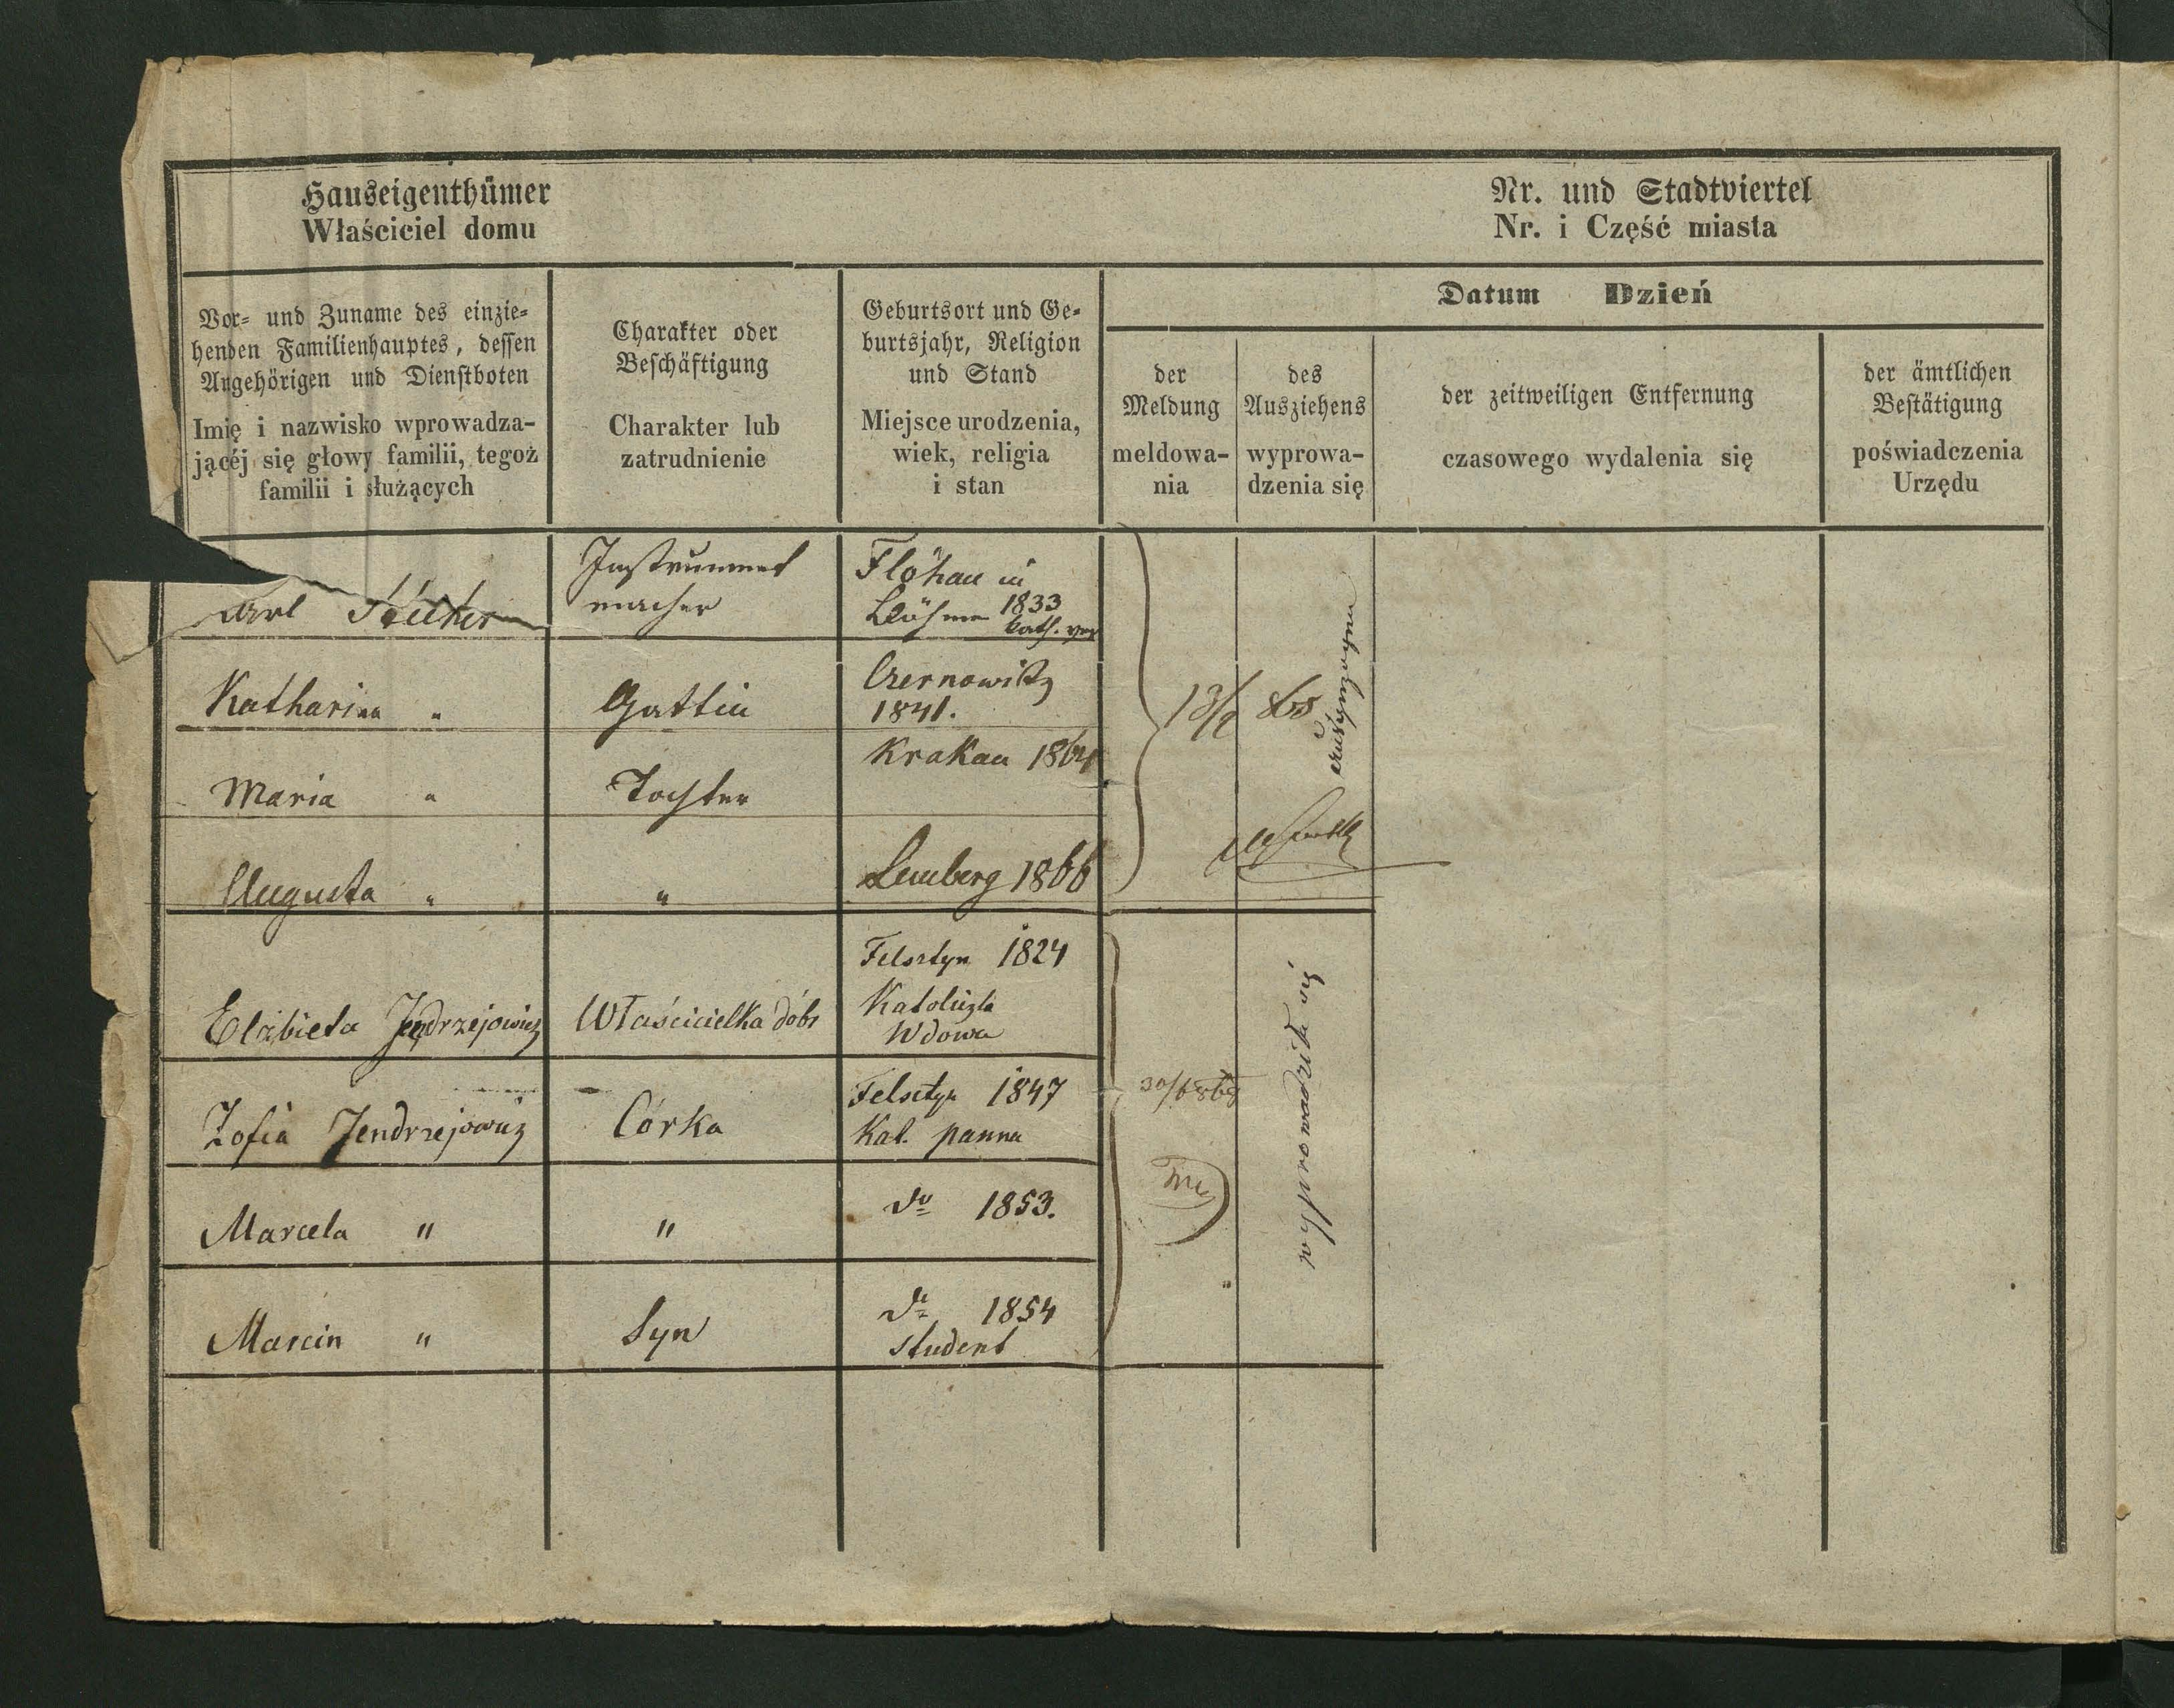 Hauseigenthümer
Właściciel domu
Nr. und Stadtviertel
Nr. i Część miasta
Vor- und Zuname des einzie-
henden Familienhauptes, dessen
Angehörigen und Dienstboten
Imię i nazwisko wprowadza-
jącéj się głowy familii, tegoż
familii i służących
Charakter oder
Beschäftigung
Charakter lub
zatrudnienie
Geburtsort und Ge-
burtsjahr, Religion
und Stand
Miejsce urodzenia,
wiek, religia
i stan
Datum Dzień
der
Meldung
meldowa-
nia
des
Ausziehens
wyprowa-
dzenia się
der zeitweiligen Entfernung
czasowego wydalenia się
der ämtlichen
Bestätigung
poświadczenia
Urzędu
Instrument
macher
Flöhau in
Böhmen 1833
kath.
Katharina "
Gattin
Czernowitz
1841.
Maria "
Tochter
Krakau 1864
Augusta "
"
Lemberg 1866
Elżbieta Jędrzejowicz
Właścicielka dóbr
Felsztyn 1824
Katoliczka
Wdowa
Zofia Jendrzejowicz
Córka
Felsztyn 1847
Kat. panna
wyprowadziła się
Marcela "
"
do 1853.
Marcin "
Syn
do 1854
student